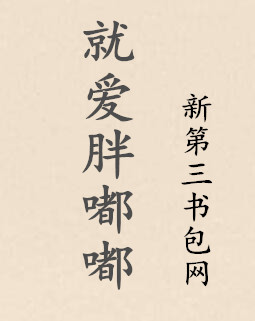 就爱胖嘟嘟
新第三书包网